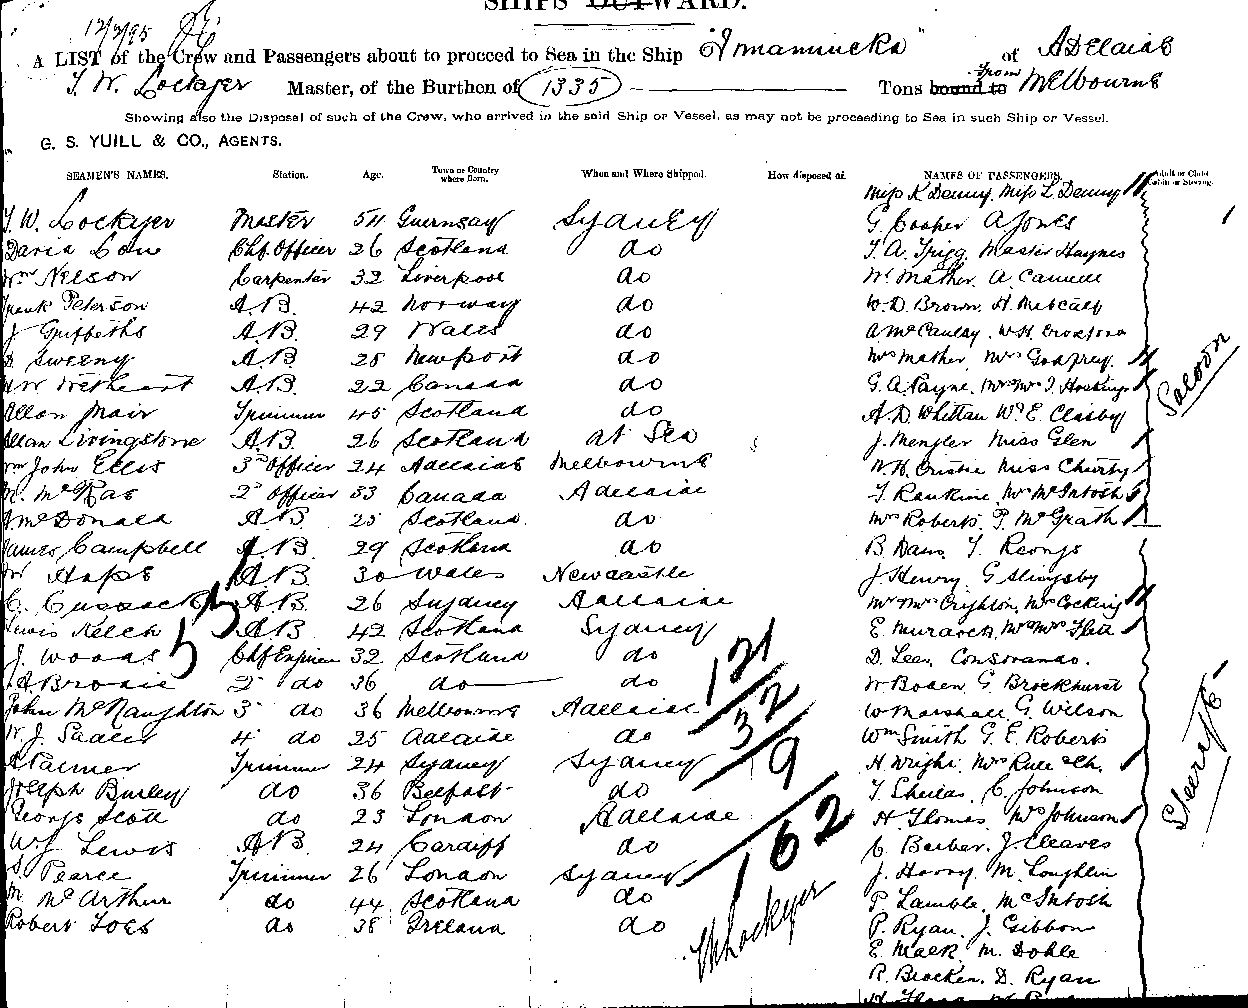 SHIPS OUTWARD.
12/3/95
A LIST of the Crew and Passengers about to proceed to Sea in the Ship "Innamincka" of Adelaide
T. W. Lockyer Master, of the Burthen of 1335 Tons bound to from Melbourne
Showing also the Disposal of such of the Crew, who arrived in the said Ship or Vessel, as may not be proceeding to Sea in such Ship or Vessel.
G. S. YUILL & CO., AGENTS.
SEAMEN'S NAMES. Station. Age. Town or Country where Born. When and Where Shipped. How disposed of. NAMES OF PASSENGERS. Adult or Child Cabin or Steerage.
Miss K Denny Miss L Denny
T. W. Lockyer Master 54 Guernsey Sydney G. Cooper A Jones
David Chf. Officer 26 Scotland do T. A. Trigg Master Haynes
Wm Nelson Carpenter 32 Liverpool do W. Mather A.
Frank Peterson A.B. 42 Norway do W. D. Brown H. Metcalf
J Griffeths A.B. 29 Wales do A McCaulay W.H.
D Sweeny A.B. 25 Newport do Mrs Mather Mrs Godfrey
A.B. 22 Canada do G. A. Payne Mr & Mrs J Hosking
Allan Mair Trimmer 45 Scotland do A. D. Whittan W. E. Clasby
Allan Livingstone A.B. 26 Scotland at Sea J. Mengler Miss Glen
Wm John Ellis 3rd Officer 24 Adelaide Melbourne W. H. Miss
McRae 2d Officer 33 Canada Adelaide T. Rankine Mrs McIntosh
McDonald A.B. 25 Scotland do Mrs Roberts P. McGrath
James Campbell A.B. 29 Scotland do B Davis T.
A.B. 30 Wales Newcastle J Henry G Slingsby
C. Cussack A.B. 26 Sydney Adelaide Mr Mrs Crighton Mrs Cocking
Lewis Kelch A.B. 42 Scotland Sydney E. Murdoch Mr Mrs
J. Woods Chf Engineer 32 Scotland do D. Lees
J. A. Brodie 2 do 36 do do W Boden G. Brockhurst
John McNaughton 3 do 36 Melbourne Adelaide W Marshall G. Wilson
W. J. Sadler 4 do 25 Adelaide do Wm Smith G. E. Roberts
A Palmer Trimmer 24 Sydney Sydney H Wright Mrs Rule & Ch.
Joseph Burley do 36 Belfast do T. C. Johnson
George Scott do 23 London Adelaide H. Thomas Mrs Johnson
W J Lewis A.B. 24 Cardiff do C. Barber J Cleaves
S Pearce Trimmer 26 London Sydney J. Harry M. Loughlin
M McArthur do 44 Scotland do P. Lamble McIntosh
Robert Toes do 38 Ireland do P. Ryan J. Gibbon
E. Mack M. Dohle
R. Bracken D. Ryan
Saloon
Steerage
53
121
32
9
162
TW Lockyer